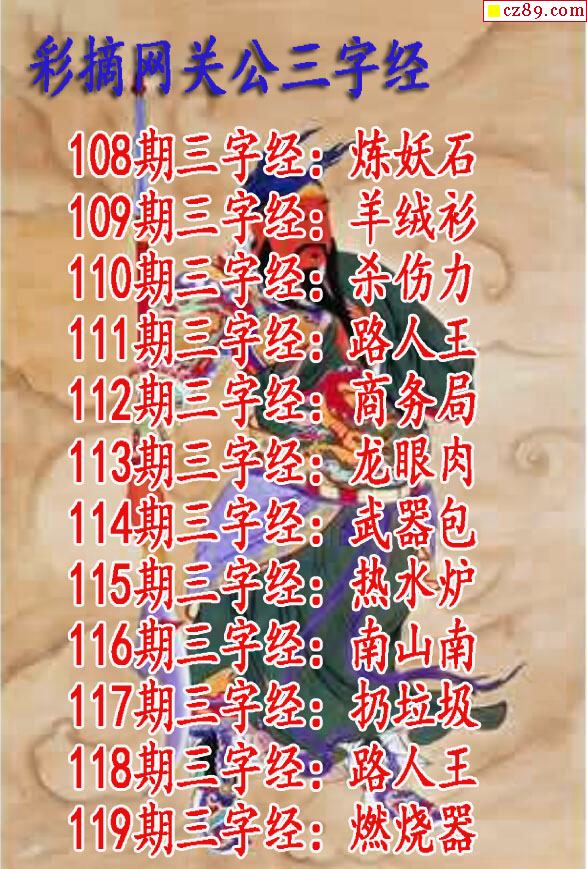 cz89.com
彩摘网关公三字经
108期三字经：炼妖石
109期三字经：羊绒衫
110期三字经：杀伤力
111期三字经：路人王
112期三字经：商务局
113期三字经：龙眼肉
114期三字经：武器包
115期三字经：热水炉
116期三字经：南山南
117期三字经：扔垃圾
118期三字经：路人王
119期三字经：燃烧器